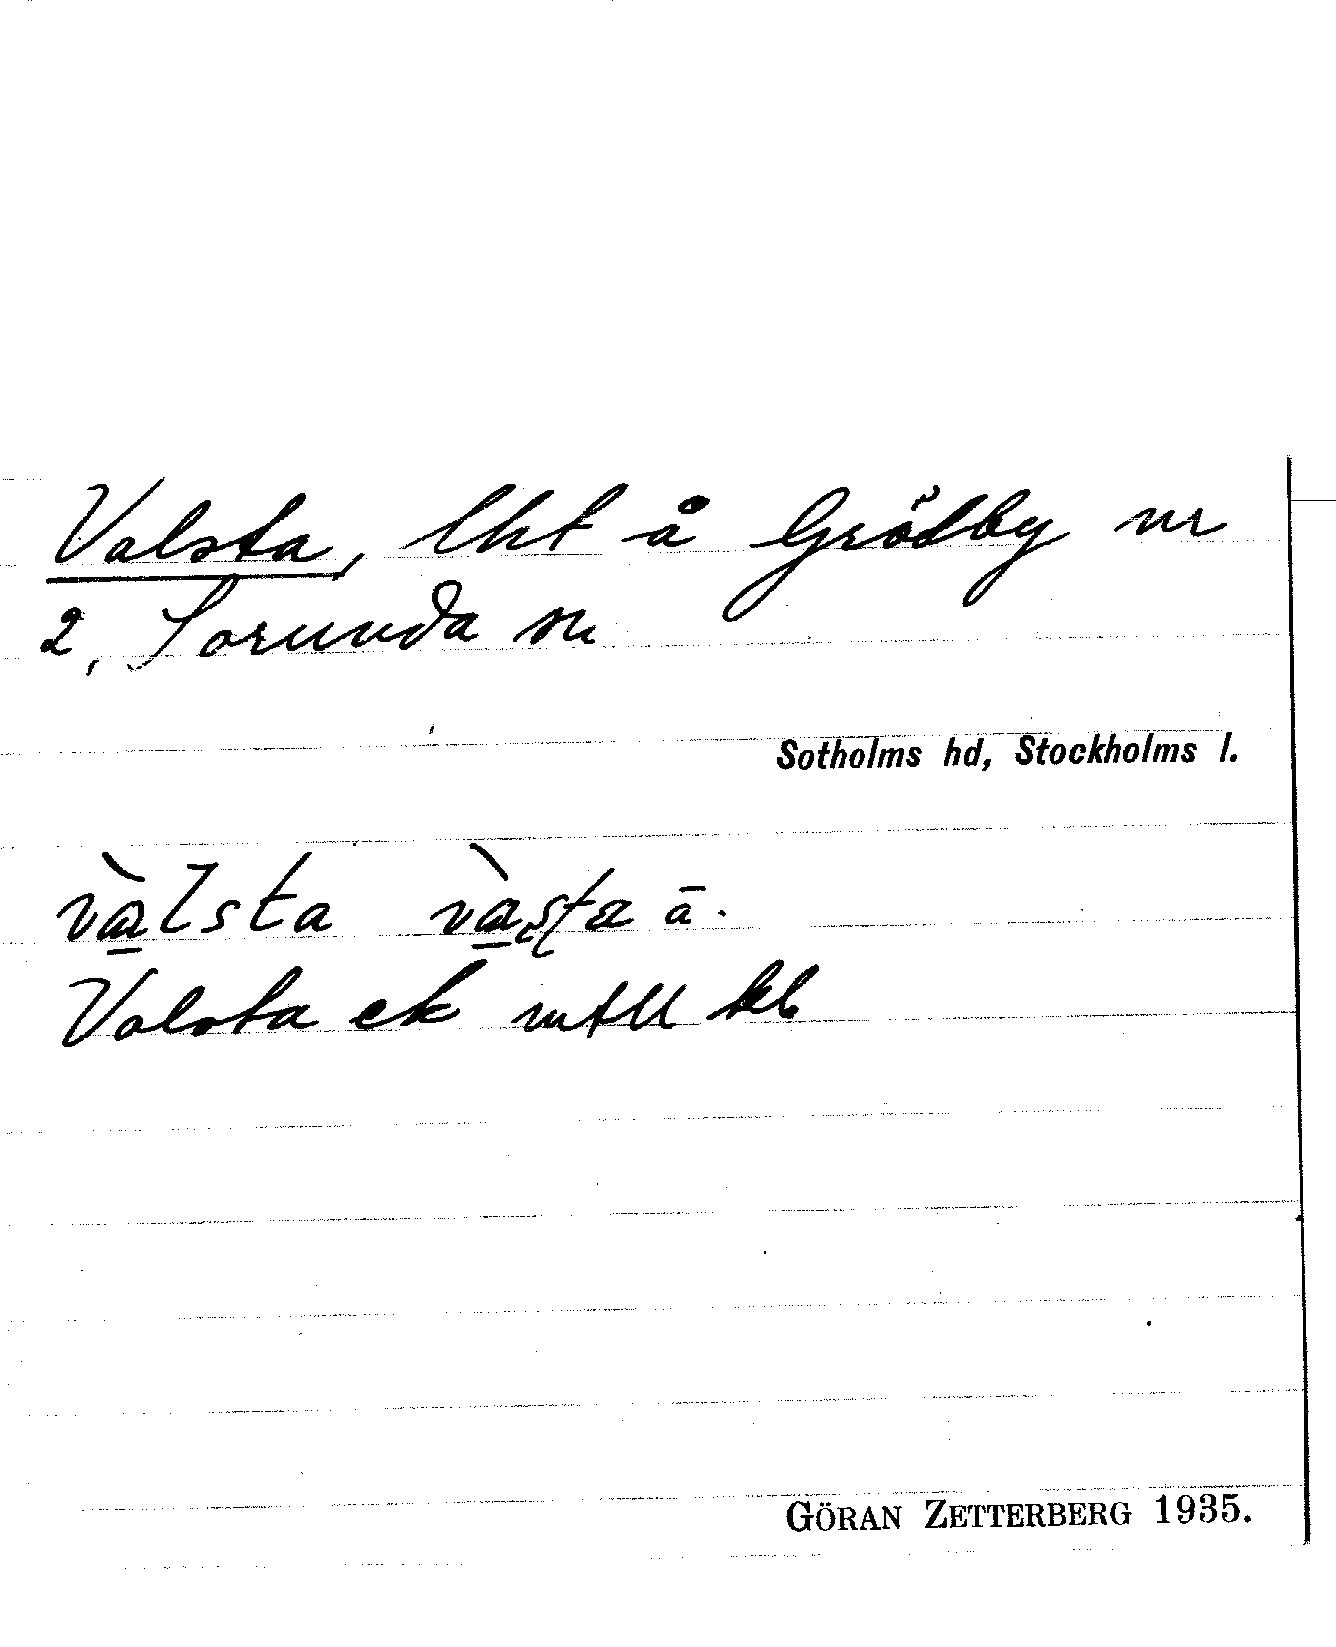 Valsta, lht å Grödby nr
2, Sorunda sn
Sotholms hd, Stockholms l.
và̱lsta và̱ʂʈa ā.
Valsta ek
GÖRAN ZETTERBERG 1935.